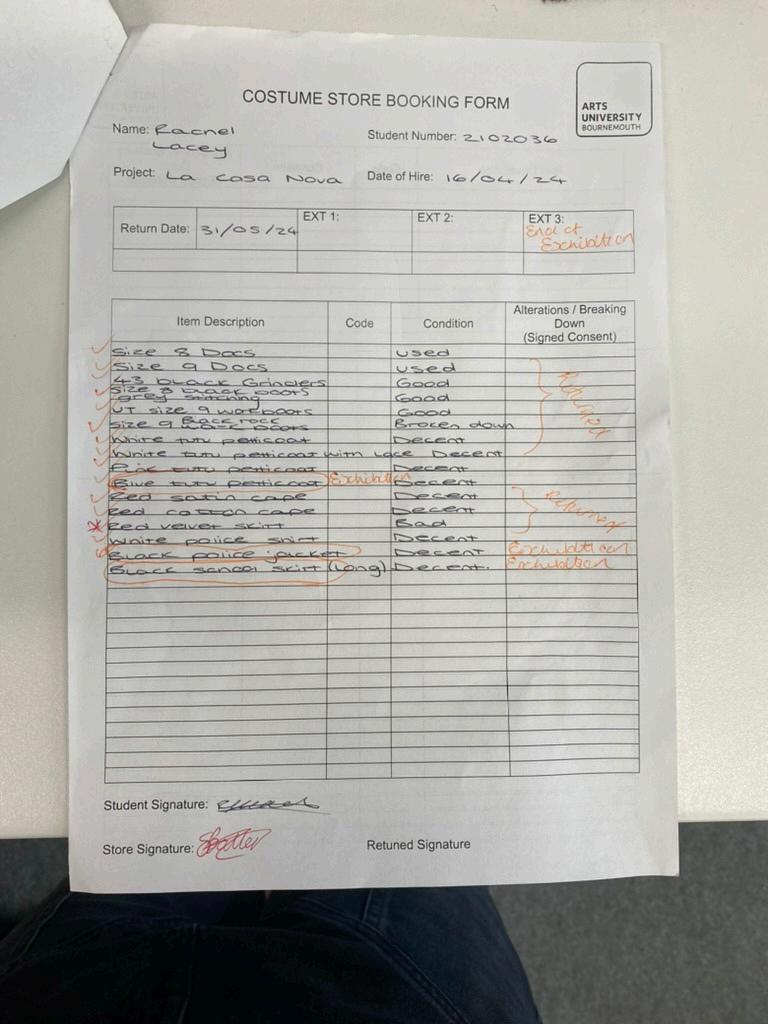 COSTUME STORE BOOKING FORM
ARTS
UNIVERSITY
BOURNEMOUTH
Name: Rachel
Lacey
Student Number: 2102036
Project: La Casa Nova Date of Hire: 16/04/24
Return Date: 31/05/24 EXT 1: EXT 2: EXT 3:
End of
Exhibition
Item Description Code Condition Alterations / Breaking
Down
(Signed Consent)
Size 8 Docs used
Size 9 Docs used
43 black Grinders Good
Size 8 black boots
grey stitching Good
UT size 9 workboots Good
Size 9 Black rock
work boots Broken down
White tutu petticoat Decent
White tutu petticoat with lace Decent
Returned
Pink tutu petticoat Decent
Blue tutu petticoat Exhibition Decent
Red satin cape Decent
Red cotton cape Decent
Red velvet skirt Bad
White police shirt Decent
Returned
Black police jacket Decent Exhibition
Black school skirt (Long) Decent. Exhibition
Student Signature:
Store Signature:
Retuned Signature